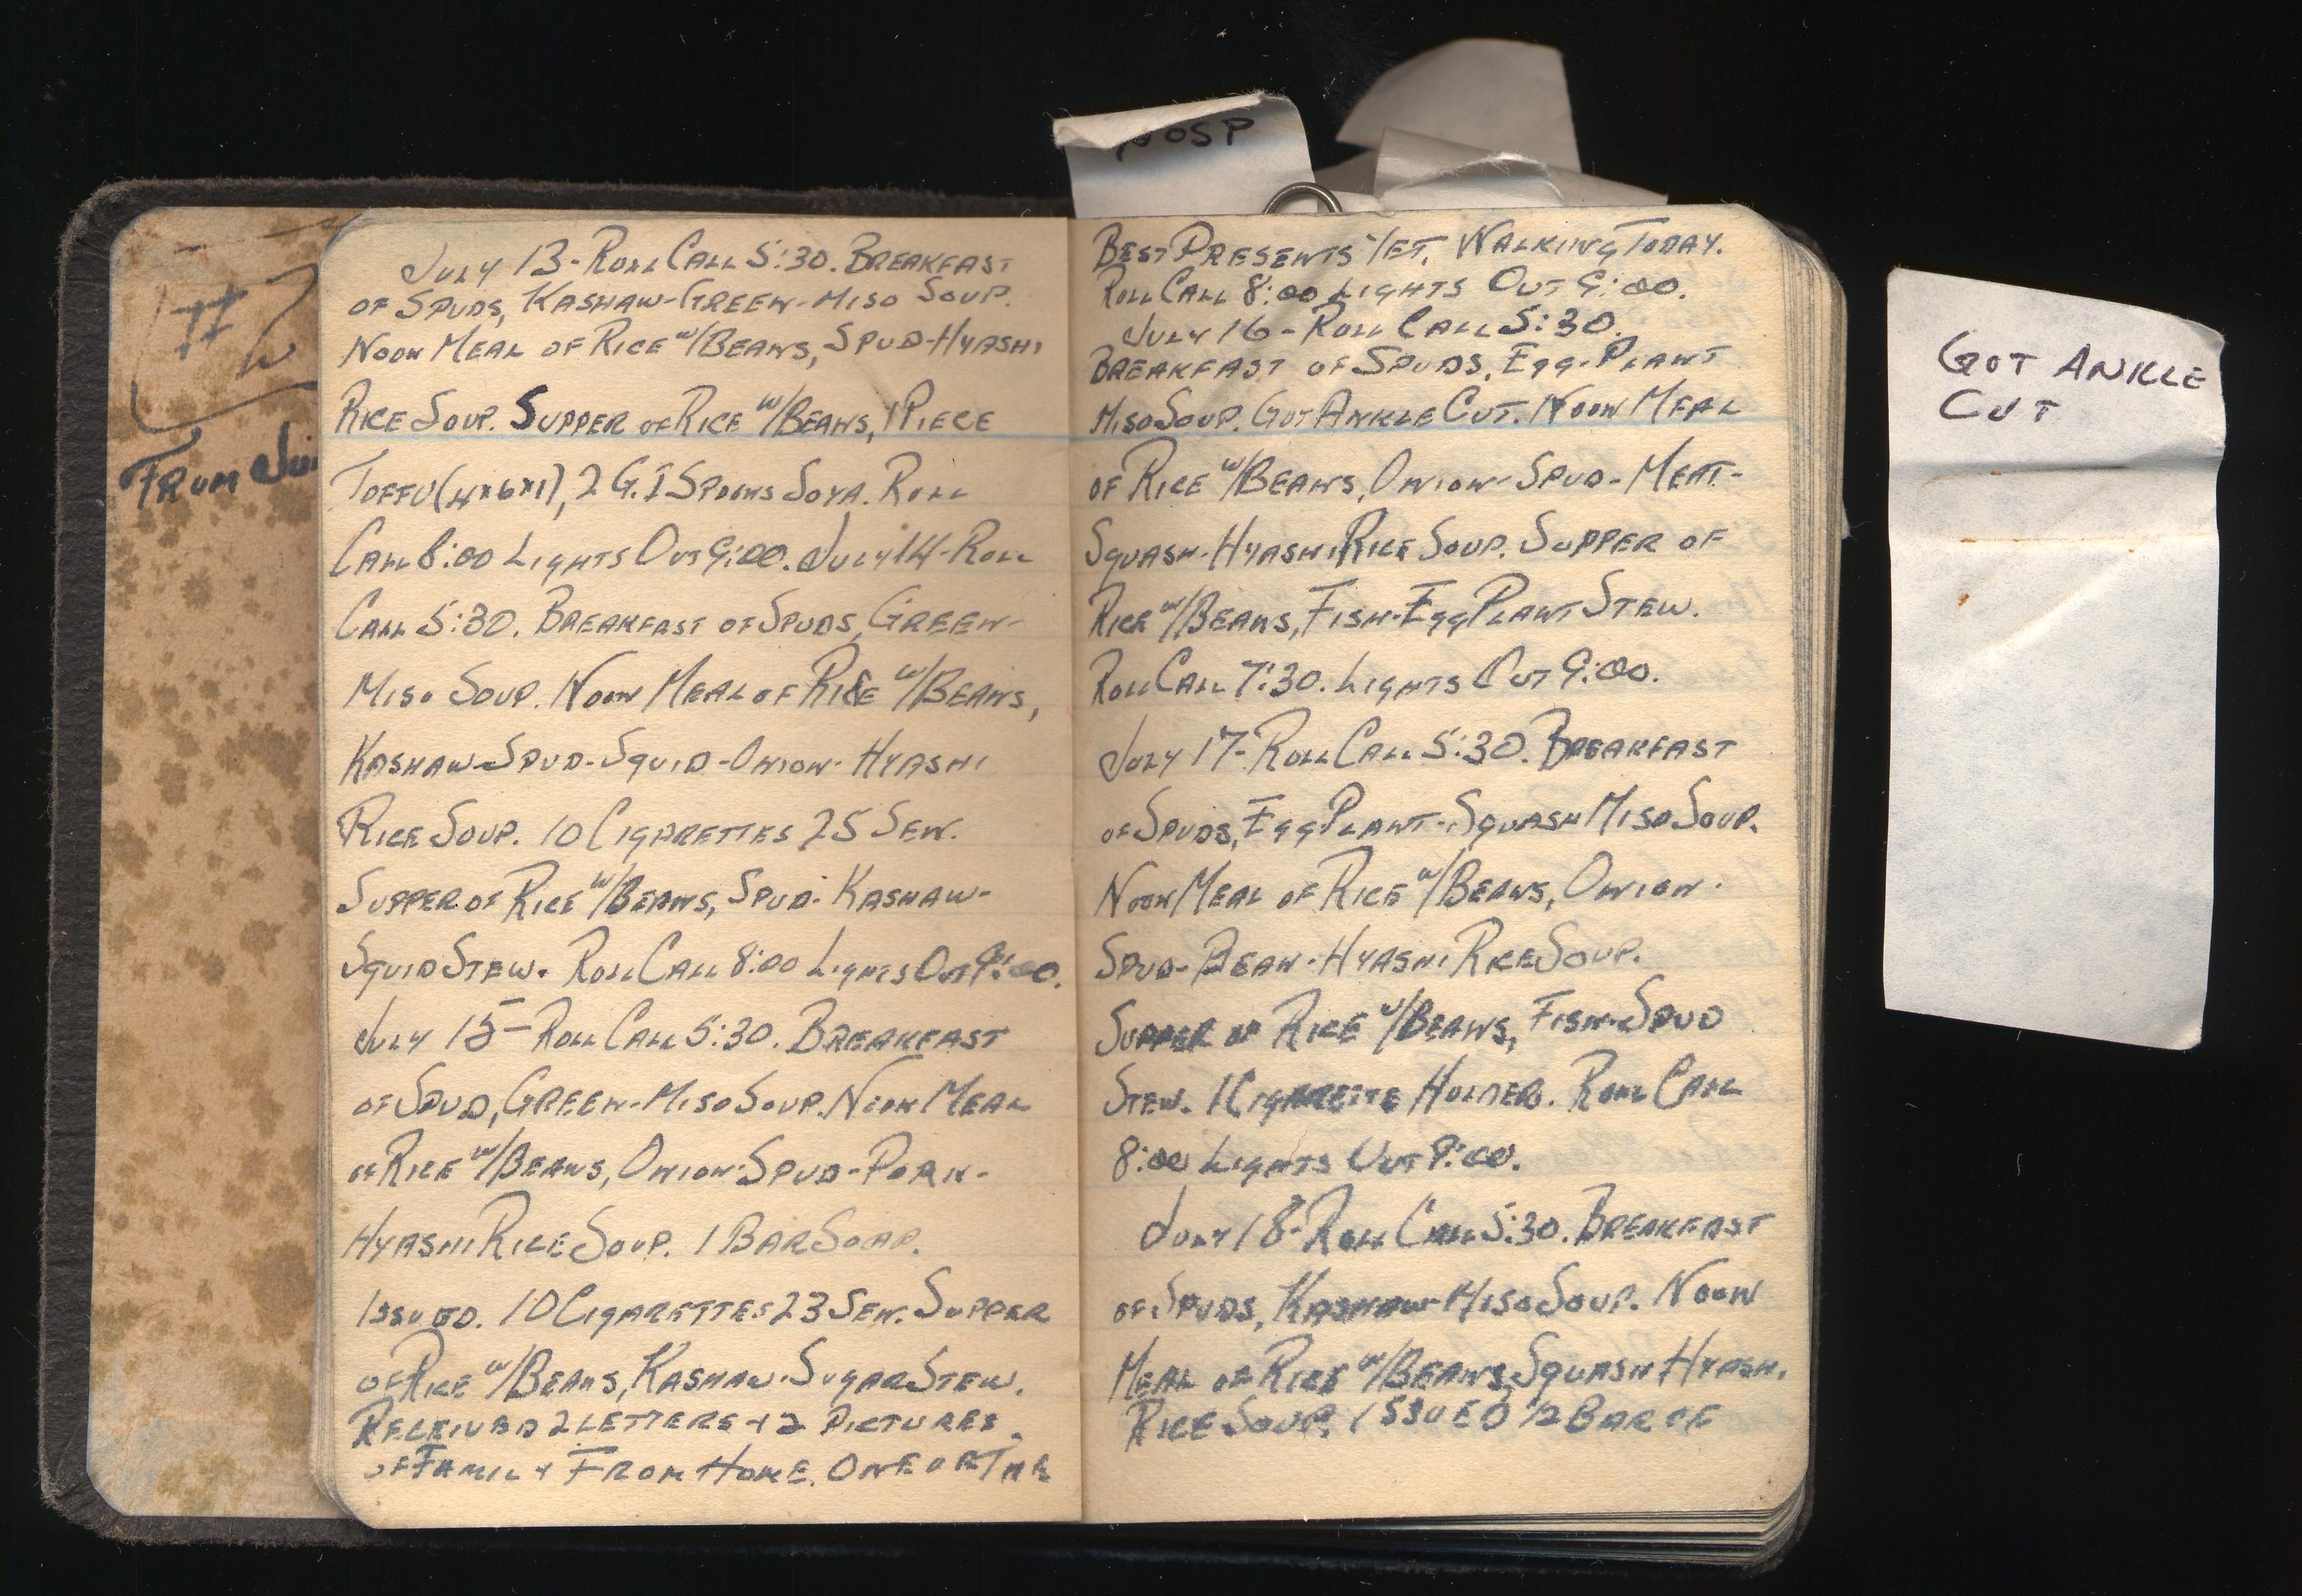 #2
From
Hosp
July 13-Roll Call 5:30. Breakfast
of Spuds, Kashaw-Green-Miso Soup.
Noon Meal of Rice w/Beans, Spud-Hyashi
Rice Soup. Supper of Rice w/Beans, 1 Piece
Toffu (4x6x1), 2 G.I Spoons Soya. Roll
Call 8:00 Lights Out 9:00. July 14-Roll
Call 5:30. Breakfast of Spuds, Green-
Miso Soup. Noon Meal of Rice w/Beans,
Kashaw-Spud-Squid-Onion-Hyashi
Rice Soup. 10 Cigarettes 25 Sen.
Supper of Rice w/Beans, Spud-Kashaw-
Squid Stew. Roll Call 8:00 Lights Out 9:00.
July 15-Roll Call 5:30. Breakfast
of Spud, Green-Miso Soup. Noon Meal
of Rice w/Beans, Onion-Spud-Pork-
Hyashi Rice Soup. 1 Bar Soap.
Issued. 10 Cigarettes 23 Sen. Supper
of Rice w/Beans, Kashaw-Sugar Stew.
Received 2 Letters + 2 Pictures
of Family From Home. One of The
Best Presents Yet. Walking Today.
Roll Call 8:00 Lights Out 9:00.
July 16-Roll Call 5:30.
Breakfast of Spuds, Egg-Plant
Miso Soup. Got Ankle Cut. Noon Meal
of Rice w/Beans, Onion-Spud-Meat-
Squash-Hyashi Rice Soup. Supper of
Rice w/Beans, Fish-Egg Plant Stew.
Roll Call 7:30. Lights Out 9:00.
July 17-Roll Call 5:30. Breakfast
of Spuds, Egg Plant-Squash Miso Soup.
Noon Meal of Rice w/Beans, Onion-
Spud-Bean-Hyashi Rice Soup.
Supper of Rice w/Beans, Fish-Spud
Stew. 1 Cigarette Holder. Roll Call
8:00 Lights Out 9:00.
July 18-Roll Call 5:30. Breakfast
of Spuds, Kashaw-Miso Soup. Noon
Meal of Rice w/Beans, Squash Hyashi
Rice Soup. Issued 1/2 Bar of
Got Ankle
Cut